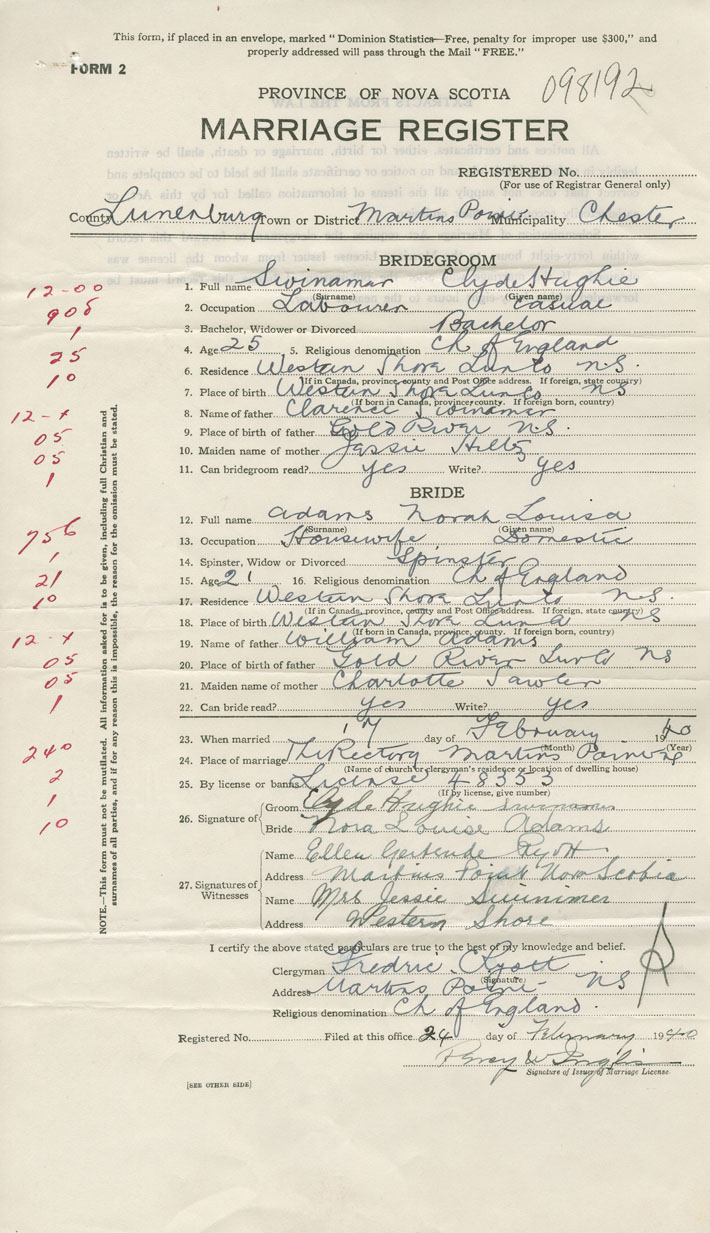 This form, if placed in an envelope, marked "Dominion Statistics—Free, penalty for improper use $300," and
properly addressed will pass through the Mail "FREE."
FORM 2
PROVINCE OF NOVA SCOTIA
098192
MARRIAGE REGISTER
REGISTERED No.
(For use of Registrar General only)
County Lunenburg Town or District Martins Point Municipality Chester
BRIDEGROOM
12-00
1. Full name Swinamar Clyde Hughie
(Surname) (Given name)
908
2. Occupation Labourer Casual
1
3. Bachelor, Widower or Divorced Bachelor
25
4. Age 25 5. Religious denomination Ch of England
10
6. Residence Western Shore Lun Co N.S.
(If in Canada, province, county and Post Office address. If foreign, state country)
7. Place of birth Western Shore Lun Co NS
(If born in Canada, province, county. If foreign born, country)
12-x
8. Name of father Clarence Swinamar
05
9. Place of birth of father Gold River N.S.
05
10. Maiden name of mother Jessie Hiltz
1
11. Can bridegroom read? Yes Write? Yes
BRIDE
12. Full name Adams Norah Louisa
(Surname) (Given name)
756
13. Occupation Housewife Domestic
1
14. Spinster, Widow or Divorced Spinster
21
15. Age 21 16. Religious denomination Ch of England
10
17. Residence Western Shore Lun Co N.S.
(If in Canada, province, county and Post Office address. If foreign, state country)
18. Place of birth Western Shore Lun Co NS
(If born in Canada, province, county. If foreign born, country)
12-x
19. Name of father William Adams
05
20. Place of birth of father Gold River Lun Co NS
05
21. Maiden name of mother Charlotte Sawler
1
22. Can bride read? Yes Write? Yes
23. When married 17 day of February 1940
(Month) (Year)
240
24. Place of marriage The Rectory Martins Point NS
(Name of church or clergyman's residence or location of dwelling house)
2
25. By license or banns License 48353
(If by license, give number)
1
26. Signature of Groom Clyde Hughie Swinamar
10
Bride Nora Louise Adams
27. Signatures of Witnesses
Name Ellen Gertrude Ryott
Address Martins Point Nova Scotia
Name Mrs Jessie Swinimer
Address Western Shore
NOTE.—This form must not be mutilated. All information asked for is to be given, including full Christian and
surnames of all parties, and if for any reason this is impossible, the reason for the omission must be stated.
I certify the above stated particulars are true to the best of my knowledge and belief.
Clergyman Fredric Ryott
(Signature)
Address Martins Point NS
Religious denomination Ch of England.
Registered No. Filed at this office 24 day of February 1940
Percy W Inglis
Signature of Issuer of Marriage License
[SEE OTHER SIDE]